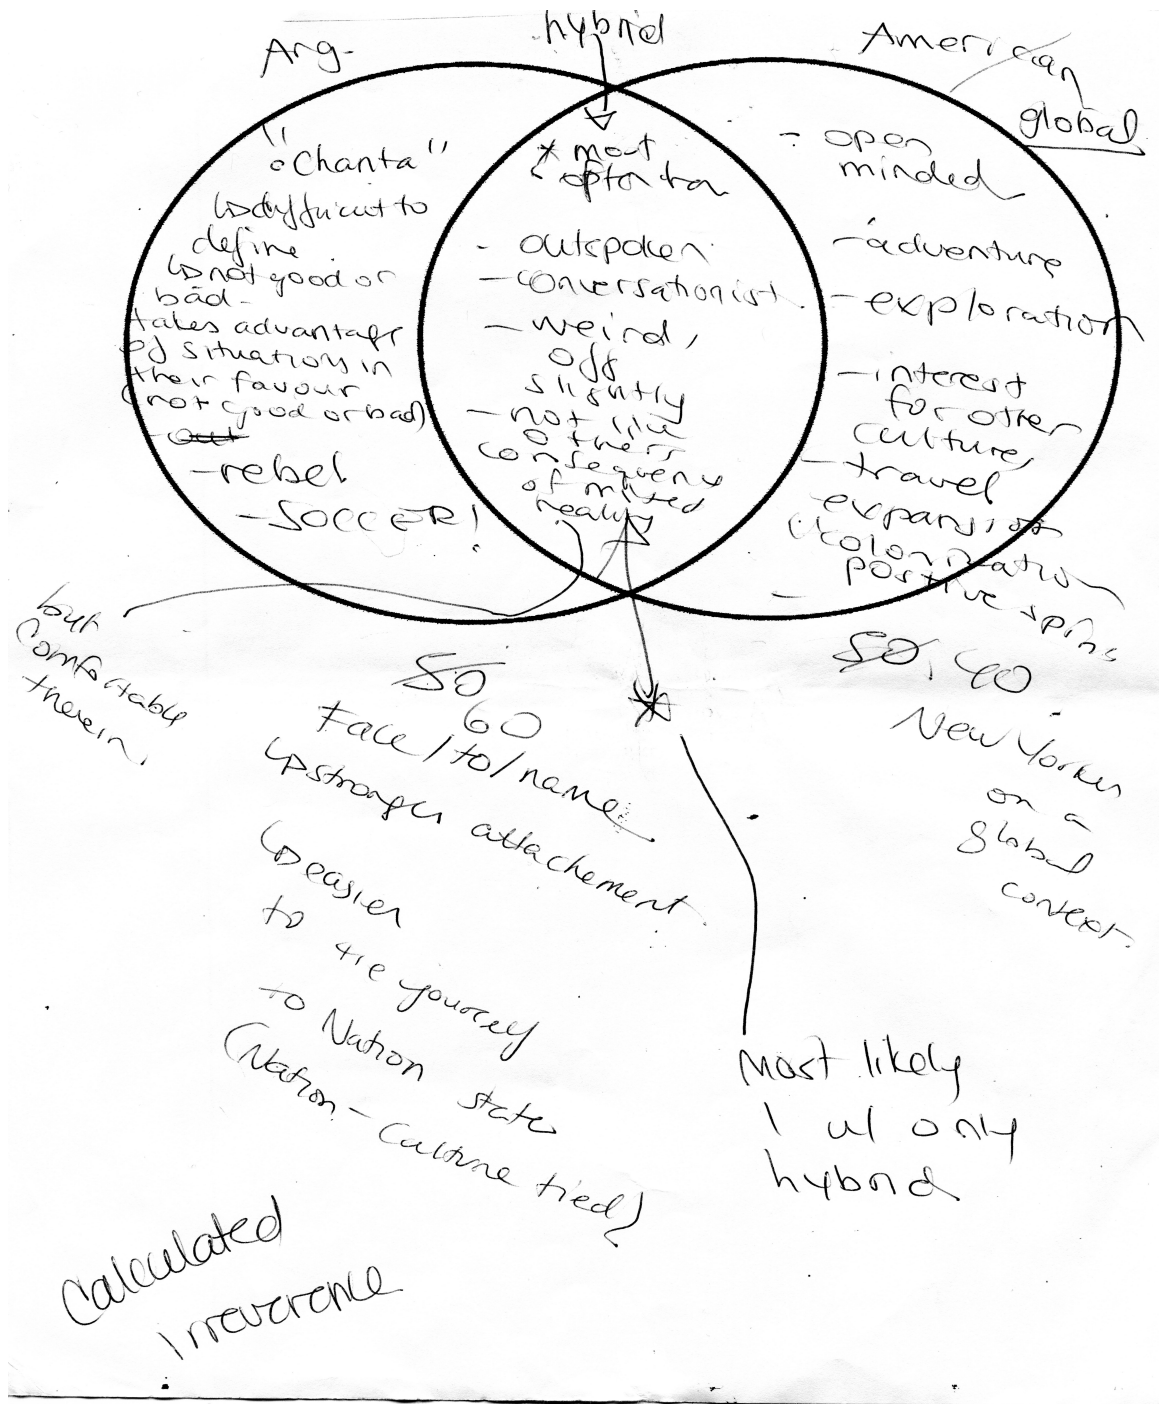 Arg-
hybrid
American
global
"Chanta"
difficult to
define
not good or
bad-
takes advantage
of situations in
their favour
(not good or bad)
- out
-rebel
-SOCCER!
* most
often
- outspoken
-conversationist
- weird,
off
slightly
- not like
others
consequence
of mixed
reality
- open
minded
-adventure
-exploration
-interest
for other
culture,
-travel
expansion
colonization
- positive spins
but
comfortable
therein
50
60
Face/to/name
stronger attachement
easier
to tie yourself
to Nation state
(Nation-Culture tied)
50, 40
New Yorker
on a
global
context.
Most likely
1 w/ only
hybrid
Calculated
irreverence